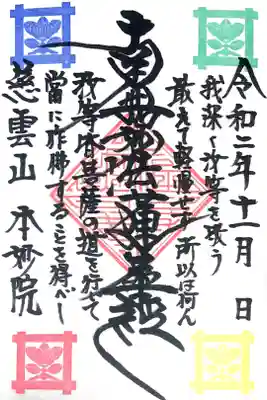 令和二年十一月 日
我深く汝等を敬う
敢えて軽慢せず 所以は何ん
南無妙法蓮華経
汝等皆菩薩の道を行じて
当に作佛することを得べし
慈雲山 本妙院